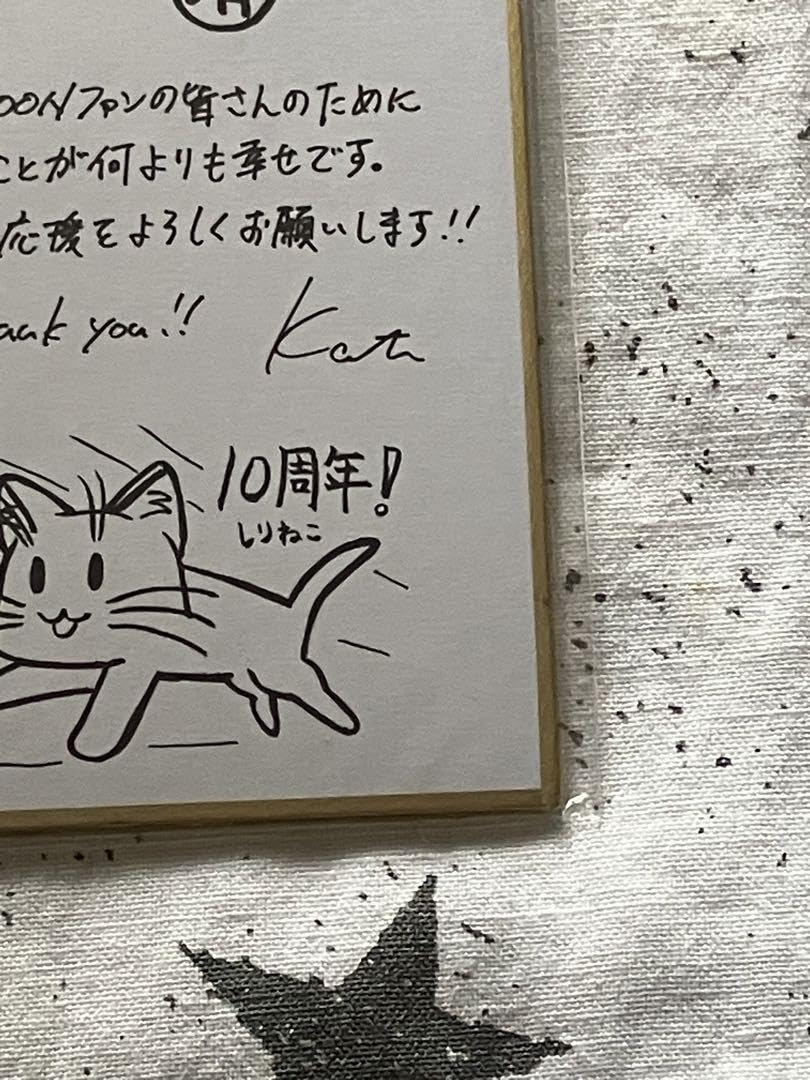 OONファンの皆さんのために
ことが何よりも幸せです。
応援をよろしくお願いします!!
you!!
Kath
10周年!
しりねこ